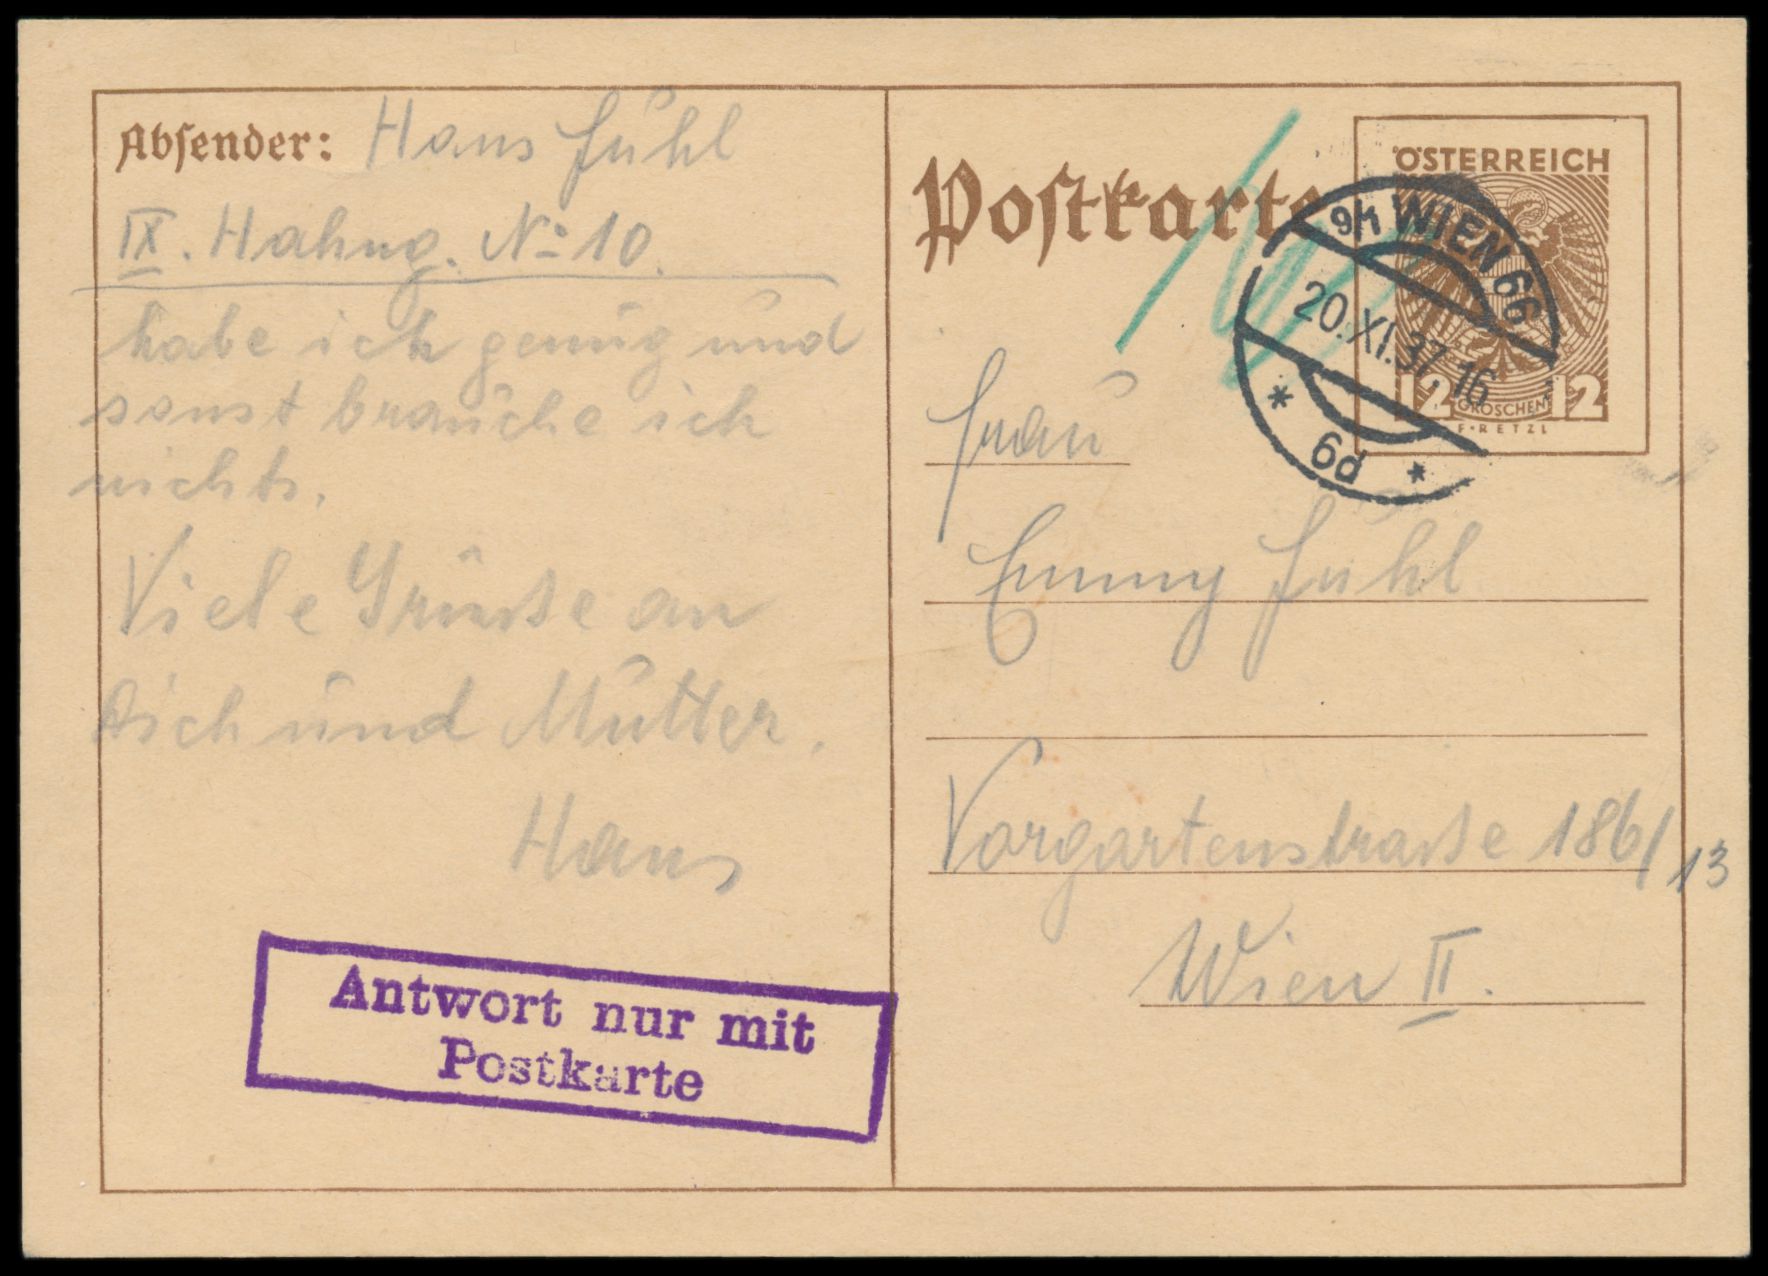 Absender: Hans Fühl
IX. Hahng. No 10.
habe ich genug und
sonst brauche ich
nichts.
Viele Grüsse an
Dich und Mutter.
Hans
Antwort nur mit
Postkarte
Postkarte
ÖSTERREICH
12 GROSCHEN 12
F·RETZL
9/k WIEN 66
20.XI.37.16
* 6d *
Frau
Emmy Fühl
Vorgartenstrasse 186/13
Wien II.